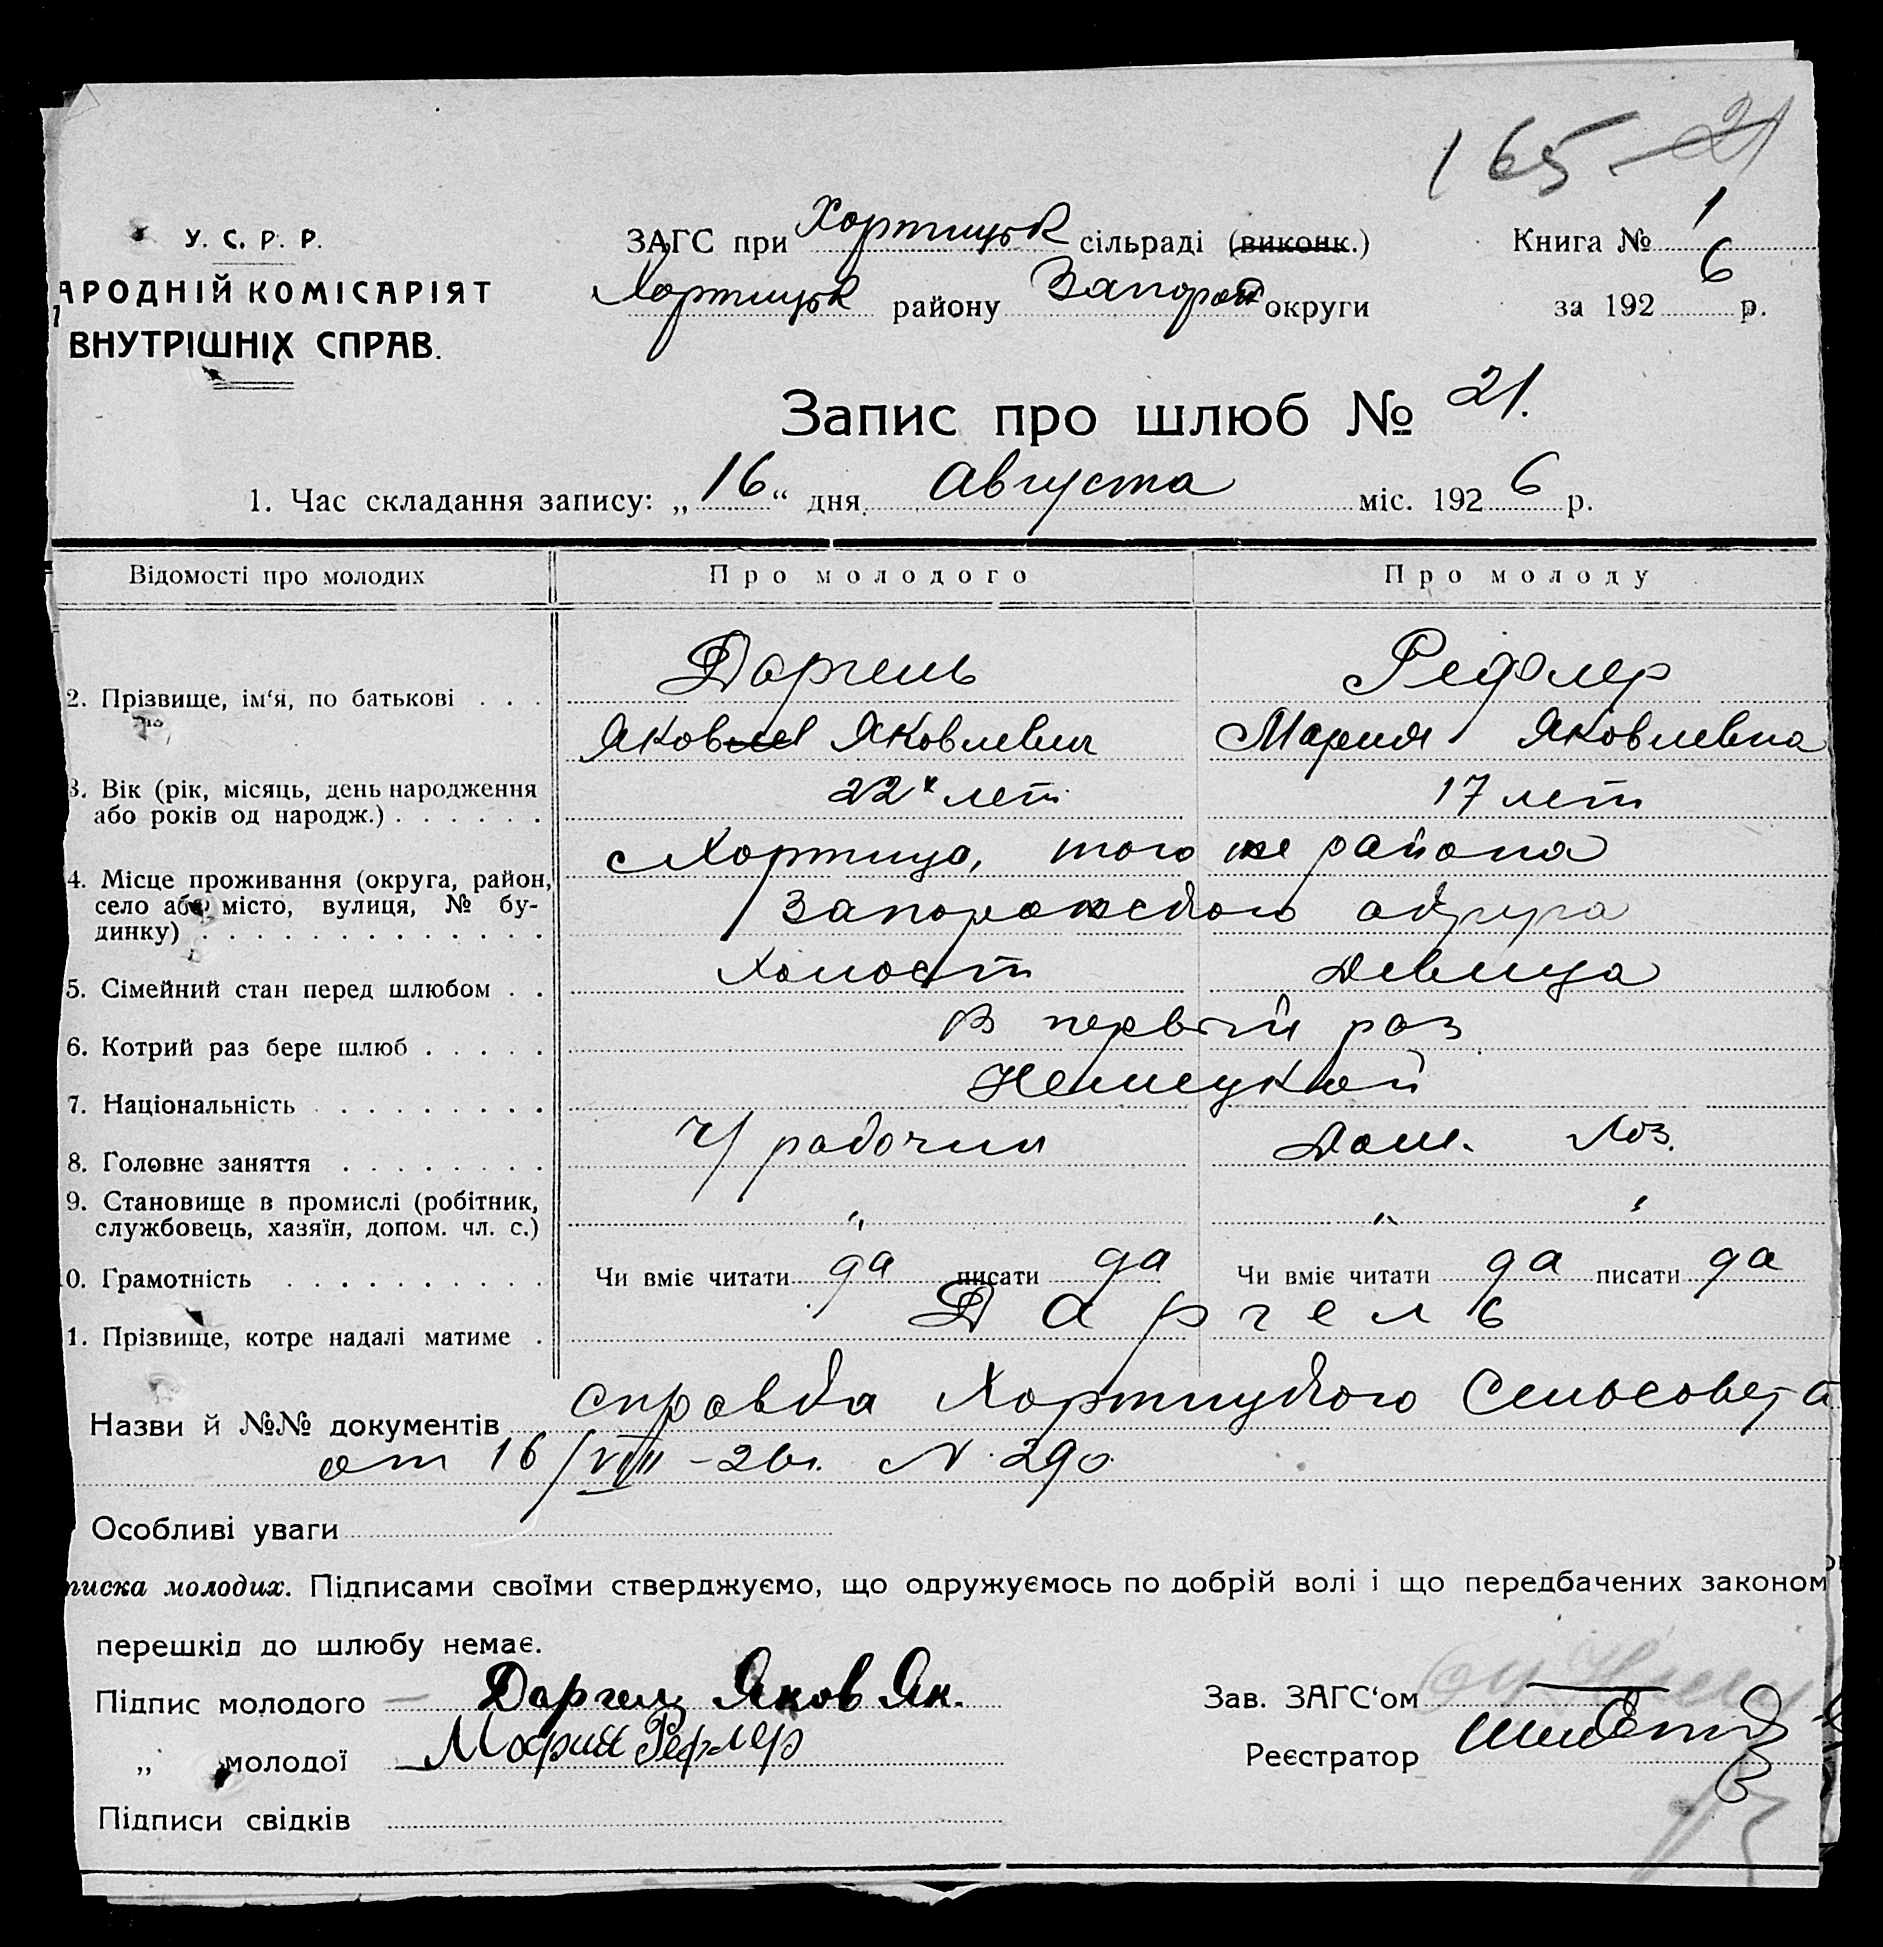 165 – 21
У. С. Р. Р.
АРОДНІЙ КОМІСАРІЯТ
ВНУТРІШНІХ СПРАВ.
ЗАГС при Хортицьк сільраді (виконк.) Книга № 1
Хортицьк району Запорож округи за 1926 р.
Запис про шлюб № 21.
1. Час складання запису: „16“ дня Августа міс. 1926 р.
Відомості про молодих Про молодого Про молоду
2. Прізвище, ім‘я, по батькові . . . Даргель Рефлер
Яков Яковлевич Мария Яковлевна
3. Вік (рік, місяць, день народження 22х лет 17 лет
або років од народж.) . . . . . .
Хортица, того же района
4. Місце проживання (округа, район,
село або місто, вулиця, № бу-
динку) . . . . . . . . . . . . . Запорожского округа
5. Сімейний стан перед шлюбом . . Холост Девица
6. Котрий раз бере шлюб . . . . . В первый раз
7. Національність . . . . . . . . Немецкой
8. Головне заняття . . . . . . . . Ч/рабочий Дом. Хоз.
9. Становище в промислі (робітник,
службовець, хазяїн, допом. чл. с.) „ „ „
0. Грамотність . . . . . . . . . . Чи вміє читати да писати да Чи вміє читати да писати да
1. Прізвище, котре надалі матиме . Даргель
Назви й №№ документів справка Хортицкого Сельсовета
от 16/VIII – 26г. N. 290
Особливі уваги
писка молодих. Підписами своїми стверджуємо, що одружуємось по добрій волі і що передбачених законом
перешкід до шлюбу немає.
Підпис молодого Даргель Яков Як. Зав. ЗАГС‘ом
„ молодої Мария Рефлер Реєстратор
Підписи свідків